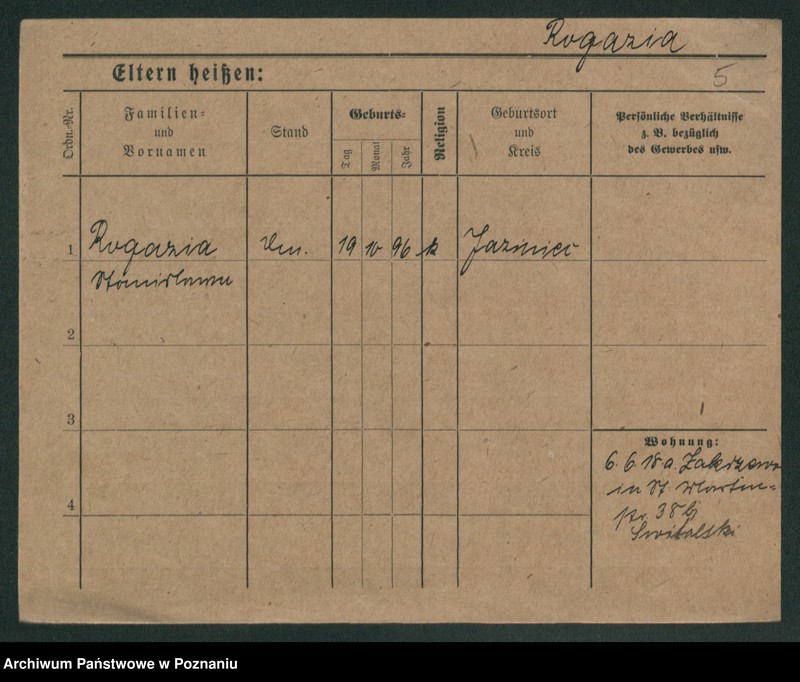 Rogazia
5
Eltern heißen:
Ordn.-Nr.
Familien-
und
Vornamen
Stand
Geburts-
Tag
Monat
Jahr
Religion
Geburtsort
und
Kreis
Persönliche Verhältnisse
z. B. bezüglich
des Gewerbes usw.
1
Rogazia
19 10 96 k
Stanislawa
2
3
4
Wohnung:
6. 6. 18 a. Zakrzewo
in St. Martin-
str. 38
Switalski
Archiwum Państwowe w Poznaniu